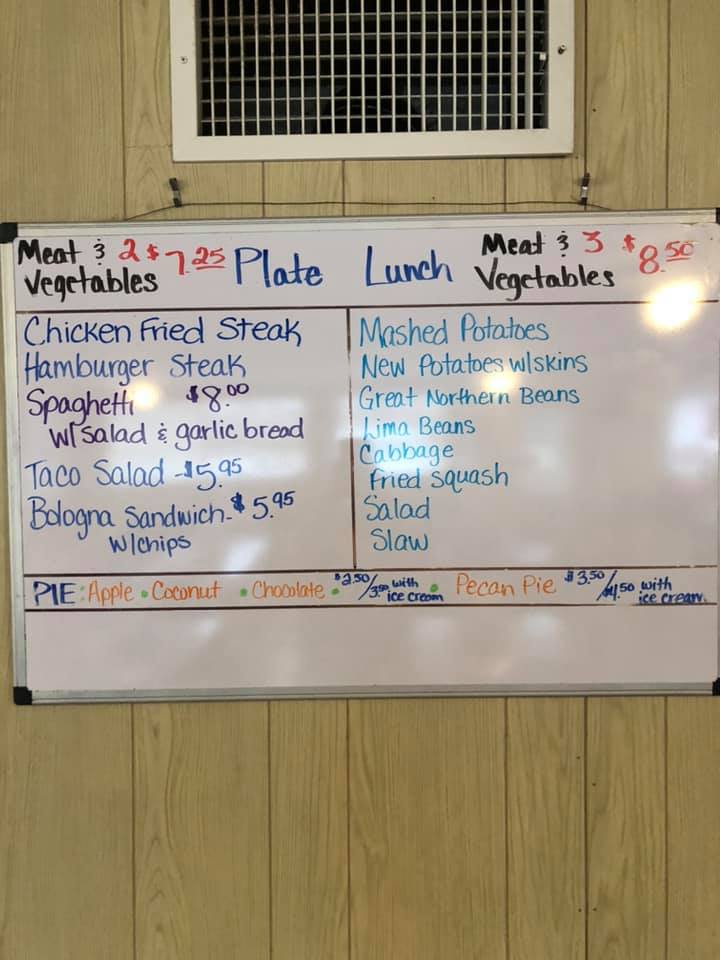 Meat & 2 $7.25
Vegetables
Plate Lunch
Meat & 3 $8.50
Vegetables
Chicken Fried Steak
Hamburger Steak
Spaghetti $8.00
w/ salad & garlic bread
Taco Salad - $5.95
Bologna Sandwich - $5.95
w/chips
Mashed Potatoes
New Potatoes w/skins
Great Northern Beans
Lima Beans
Cabbage
Fried Squash
Salad
Slaw
PIE: Apple • Coconut • Chocolate • $2.50/3.50 with ice cream • Pecan Pie $3.50/$4.50 with ice cream